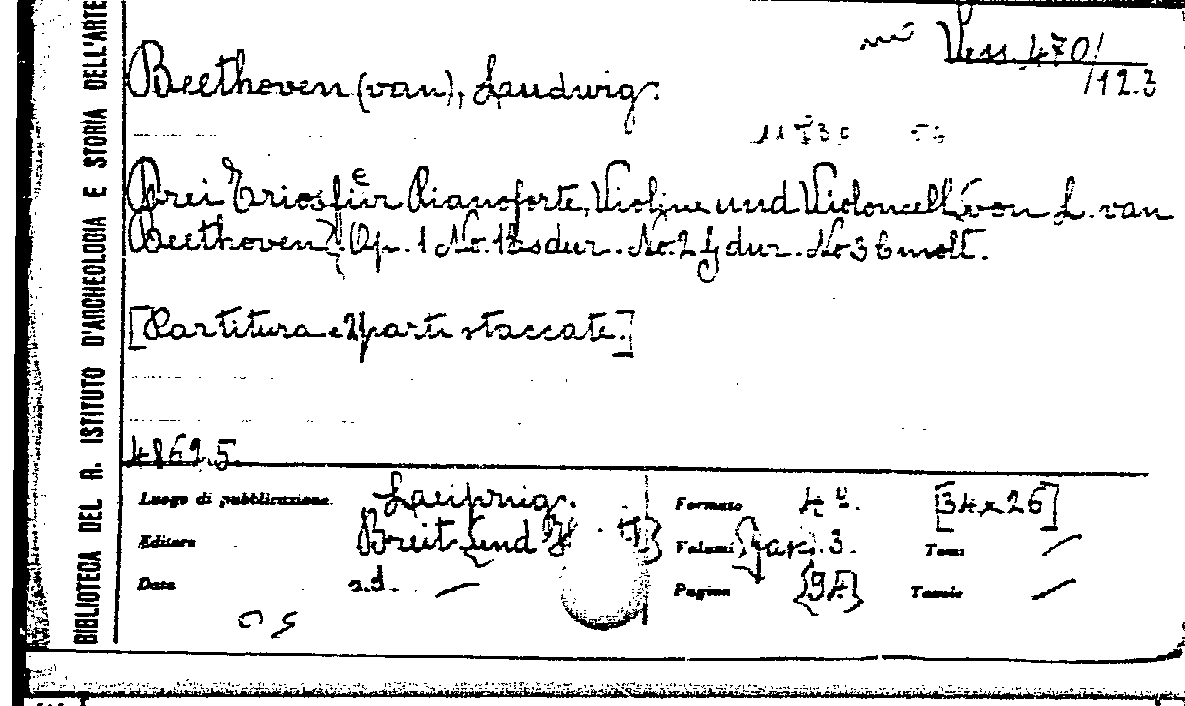 BIBLIOTECA DEL R. ISTITUTO D'ARCHEOLOGIA E STORIA DELL'ARTE
Vess. 470/
/12.3
Beethoven (van), Laudwig.
Drei Trios für Pianoforte, Violine und Violoncell von L. van
Beethoven. Op. 1 No. 1 Esdur. No. 2 G dur. No 3 C moll.
[Partitura e 2 parti staccate.]
4862.5.
Luogo di pubblicazione Laeipzig.
Formato 4º. [34 x 26]
Editore Breit. und
Volumi 3. Tomi
Data s.d. —
Pagine Tavole —